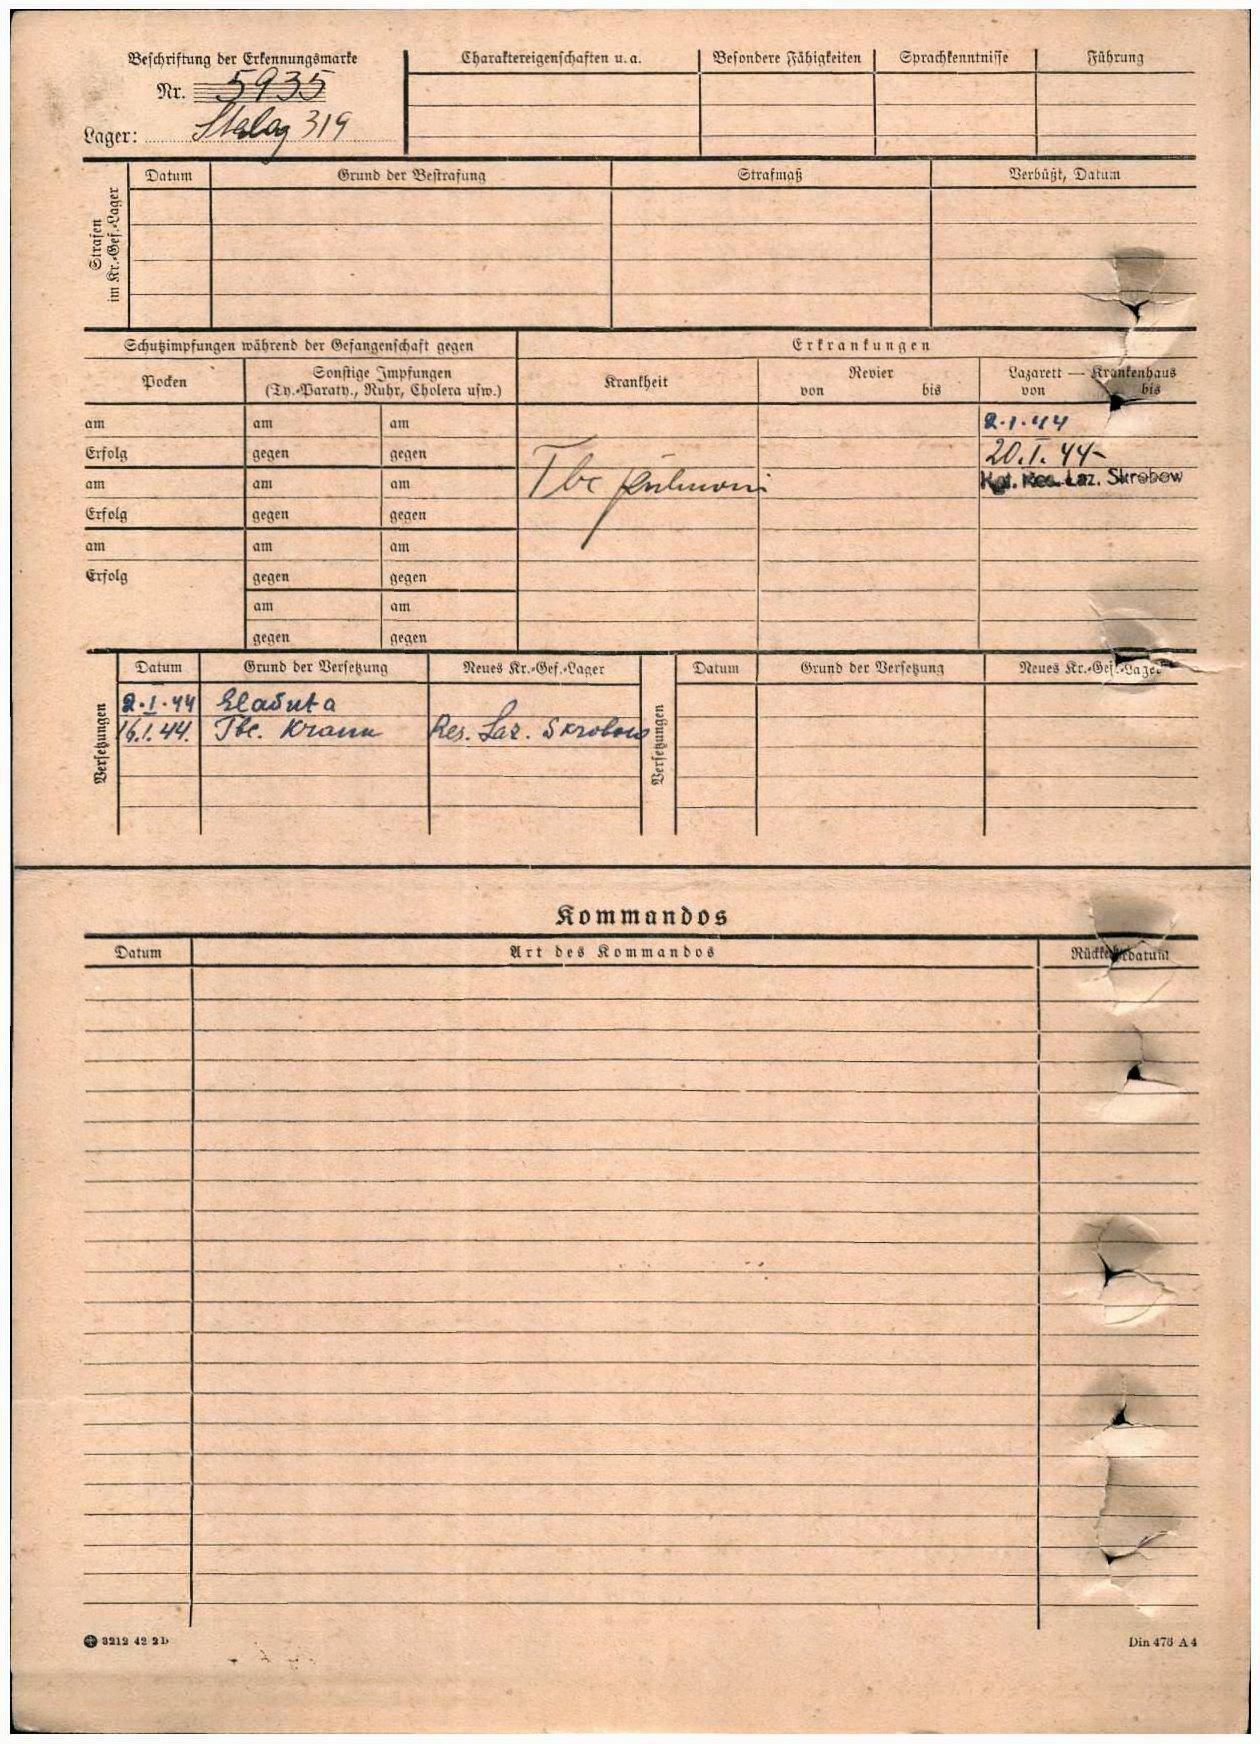 Beschriftung der Erkennungsmarke
Nr. 5935
Lager: Stalag 319
Charaktereigenschaften u. a.
Besondere Fähigkeiten
Sprachkenntnisse
Führung
Strafen im Kr.-Gef.-Lager
Datum
Grund der Bestrafung
Strafmaß
Verbüßt, Datum
Schutzimpfungen während der Gefangenschaft gegen
Erkrankungen
Pocken
Sonstige Impfungen
(Ty.-Paraty., Ruhr, Cholera usw.)
Krankheit
Revier
von bis
Lazarett — Krankenhaus
von bis
am am am 2.1.44
Erfolg gegen gegen 20.I.44-
am am am Tbc pulmoni Kgf. Res. Laz. Skrobow
Erfolg gegen gegen
am am am
Erfolg gegen gegen
am am
gegen gegen
Versetzungen
Datum Grund der Versetzung Neues Kr.-Gef.-Lager
2.I.44
16.1.44. Tbc. Krank Res. Laz. Skrobow
Versetzungen
Datum Grund der Versetzung Neues Kr.-Gef.-Lager
Kommandos
Datum Art des Kommandos Rückkehrdatum
3212 42 2D
Din 476 A4